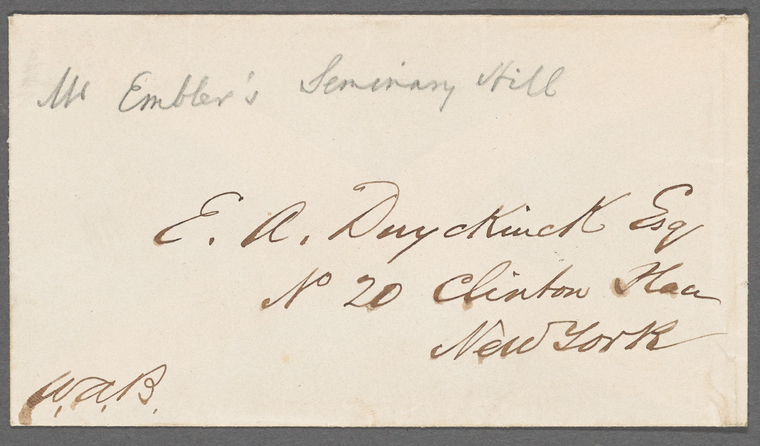 Mr Embler's Seminary Hill
E. A. Duyckinck Esq
No 20 Clinton Place
New York
W.A.B.